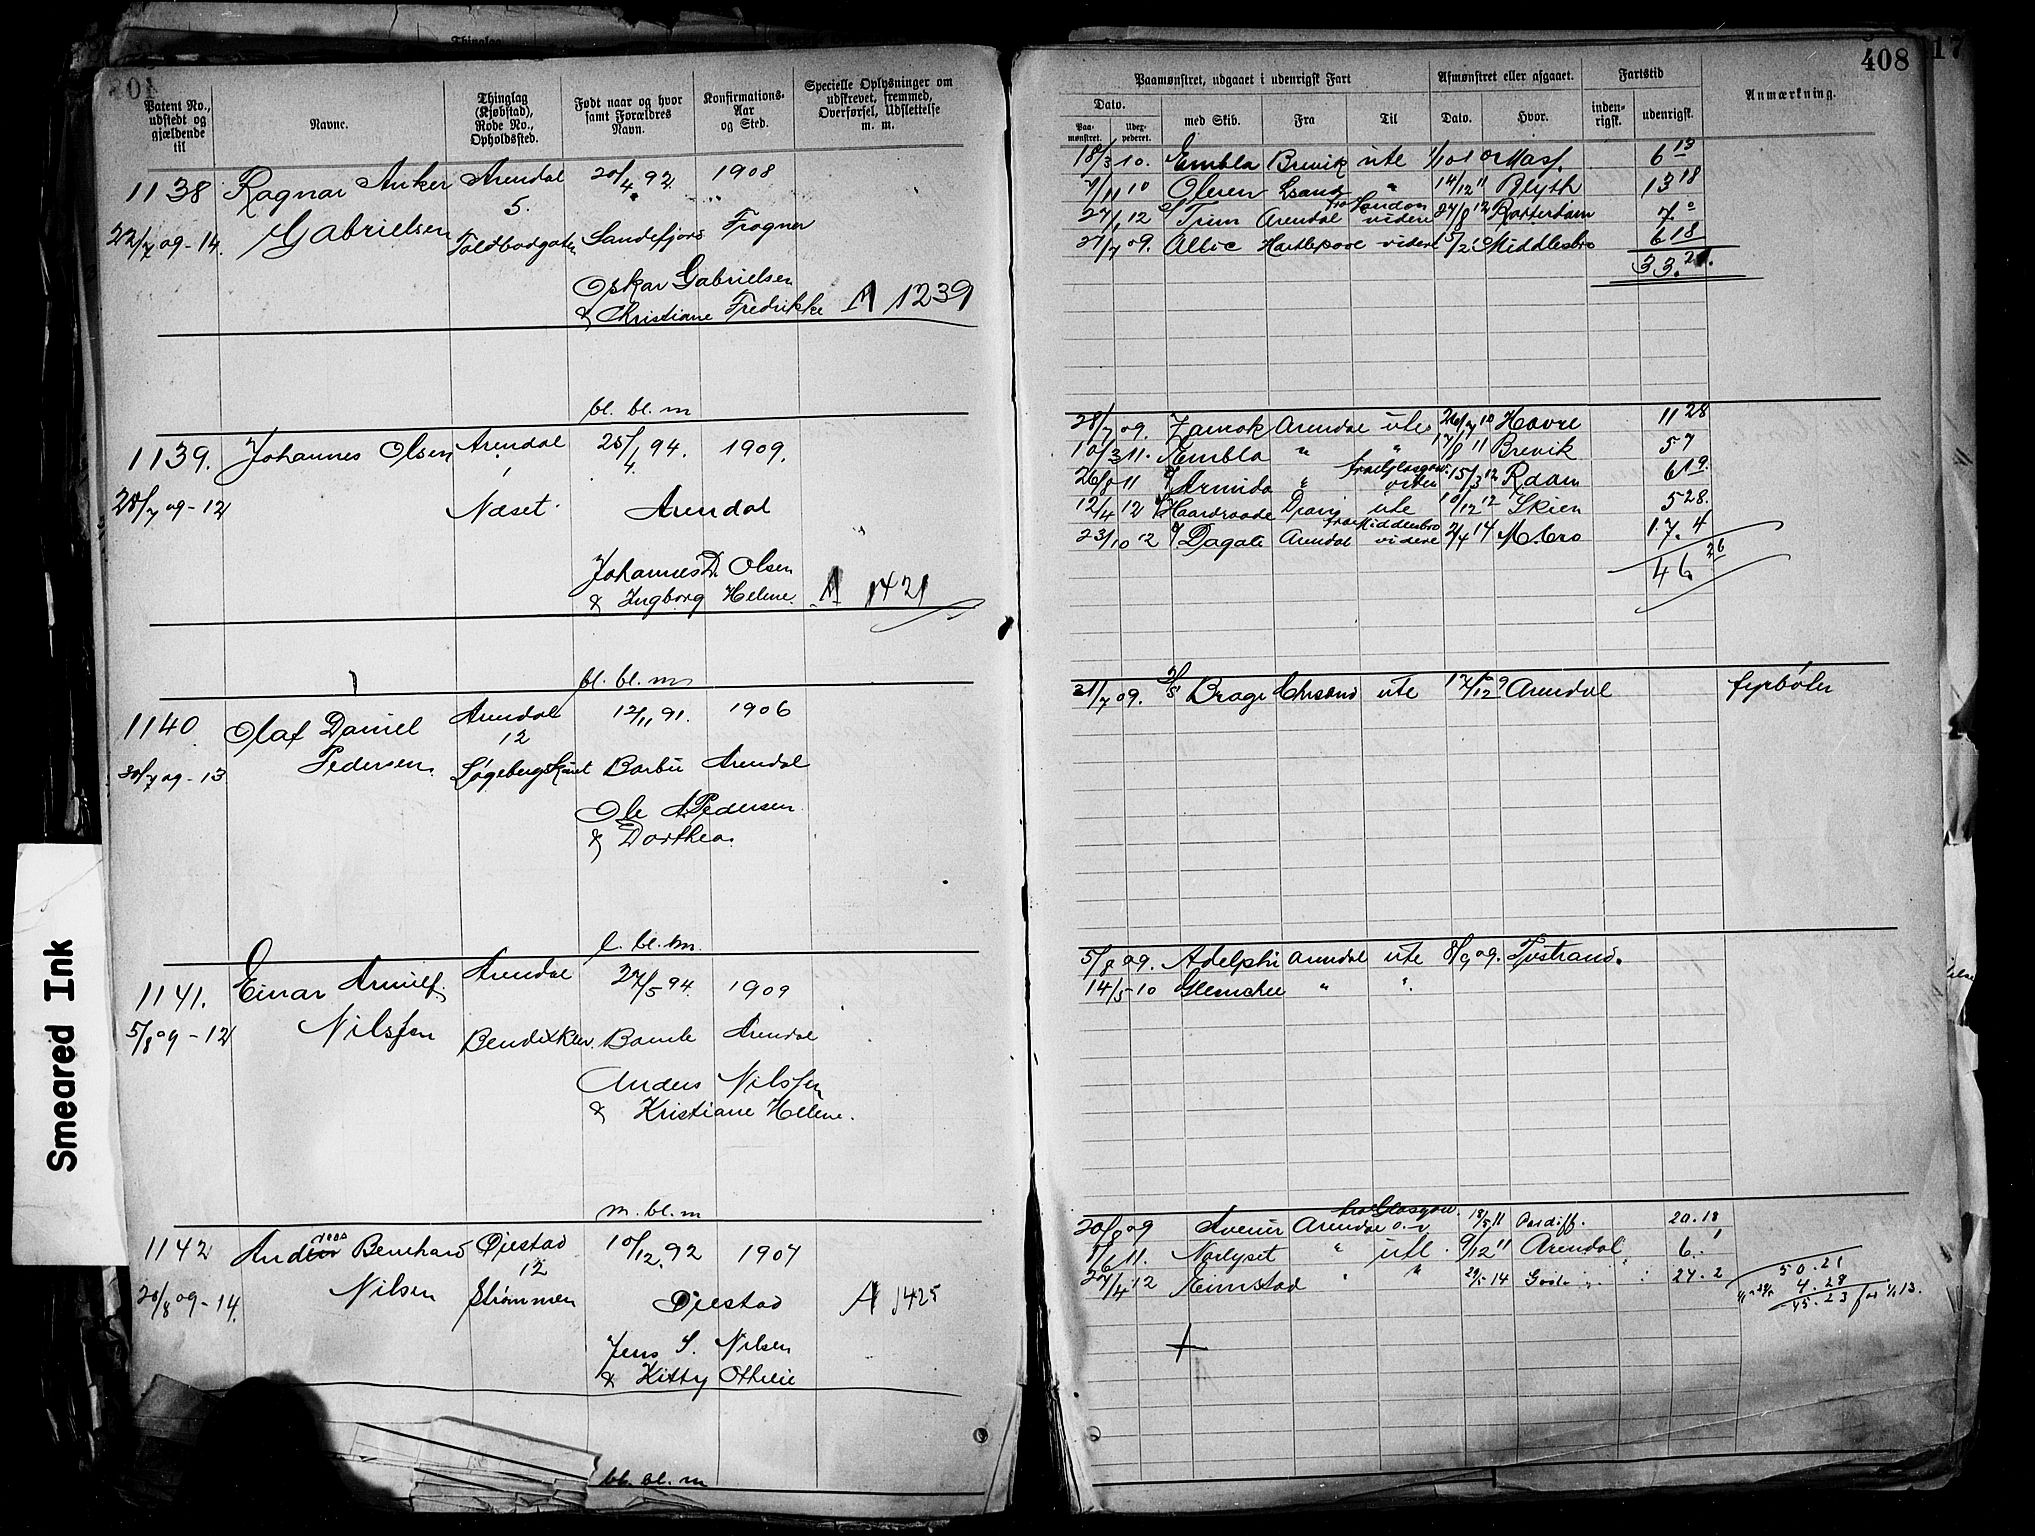 408
17
Patent No., udstedt og gjældende til
Navne.
Thinglag (Kjøbstad), Rode No., Opholdssted.
Født naar og hvor samt Forældres Navn.
Konfirmations-Aar og Sted.
Specielle Oplysninger om udskrevet, fremmed, Overførsel, Udslettelse m. m.
Paamønstret, udgaaet i udenrigsk Fart
Afmønstret eller afgaaet.
Fartstid
Anmærkning.
Dato.
Paa-mønstret.
Udex-pederet.
med Skib.
Fra
Til
Dato.
Hvor.
inden-rigsk.
udenrigsk.
1138 Ragnar Anker Arendal 20/4 92 1908
Gabrielsen 5.
22/7 09-14. Toldbodgaten Sandefjord Frogner
Oskar Gabrielsen
& Christiane Fredrikke A 1239
bl. bl. m
18/3 10. Embla Brevik ute 1/10 10 Mass. 6 13
7/11 10 Olesen Gsand " 14/12 11 Blyth 13 18
fra London
27/1 12 Trim Arendal videre 27/8 12 Rotterdam 7 0
27/7 09. Hartlepool videre Middlesbro 6 18
33.21.
1139. Johannes Olsen Arendal 25/4 94. 1909.
28/7 09-12 Næset Arendal
Johannes D. Olsen
& Ingborg Helene. A 1421
bl. bl. m
28/7 09. Zamok Arendal ute 26/7 10 Havre 11 28
10/3 11. Embla " " 17/8 11 Brevik 5 7
fra Glasgow
26/8 11 Armida " 15/3 12 6 19.
12/4 12 Haardraade Dram ute 10/12 12 Skien 5 28.
fra Middlesbro
23/10 12 Dagali Arendal videre 2/4 14 M.bro 17.4
46 26
1140 Olaf Daniel Arendal 12/11 91. 1906
Pedersen. 12
30/7 09-13 Barbu Arendal
Ole A Pedersen
& Dorthea.
l. bl. m.
31/7 09. D/S Brage Chrsand ute 12/12 09 Arendal fyrbøter
1141. Einar Arnulf Arendal 27/5 94. 1909
5/8 09-12 Nilssen Bendixklev. Bamle Arendal
Anders Nilssen
& Kristiane Helene.
m. bl. m
5/8 09. Adelphi Arendal ute 8/9 09. Tvstrand.
14/5 10 " "
1142 Andreas Bernhard Øiestad 10/12 92 1907
Nilsen 12
20/8 09-14. Strømmen Øiestad A 1425
Jens S. Nilsen
& Kitty Othelie
bl. bl. m
fra Glasgow.
20/8 09 Avenir Arendal 18/5 11 Cardiff. 20.18
1/6 11. Norlyset " utl. 9/12 11 Arendal 6.1
27/4 12 Rimstad " " 29/5 14 24.2
50.21
4.28
45.23 før 1/1 13.
Smeared Ink